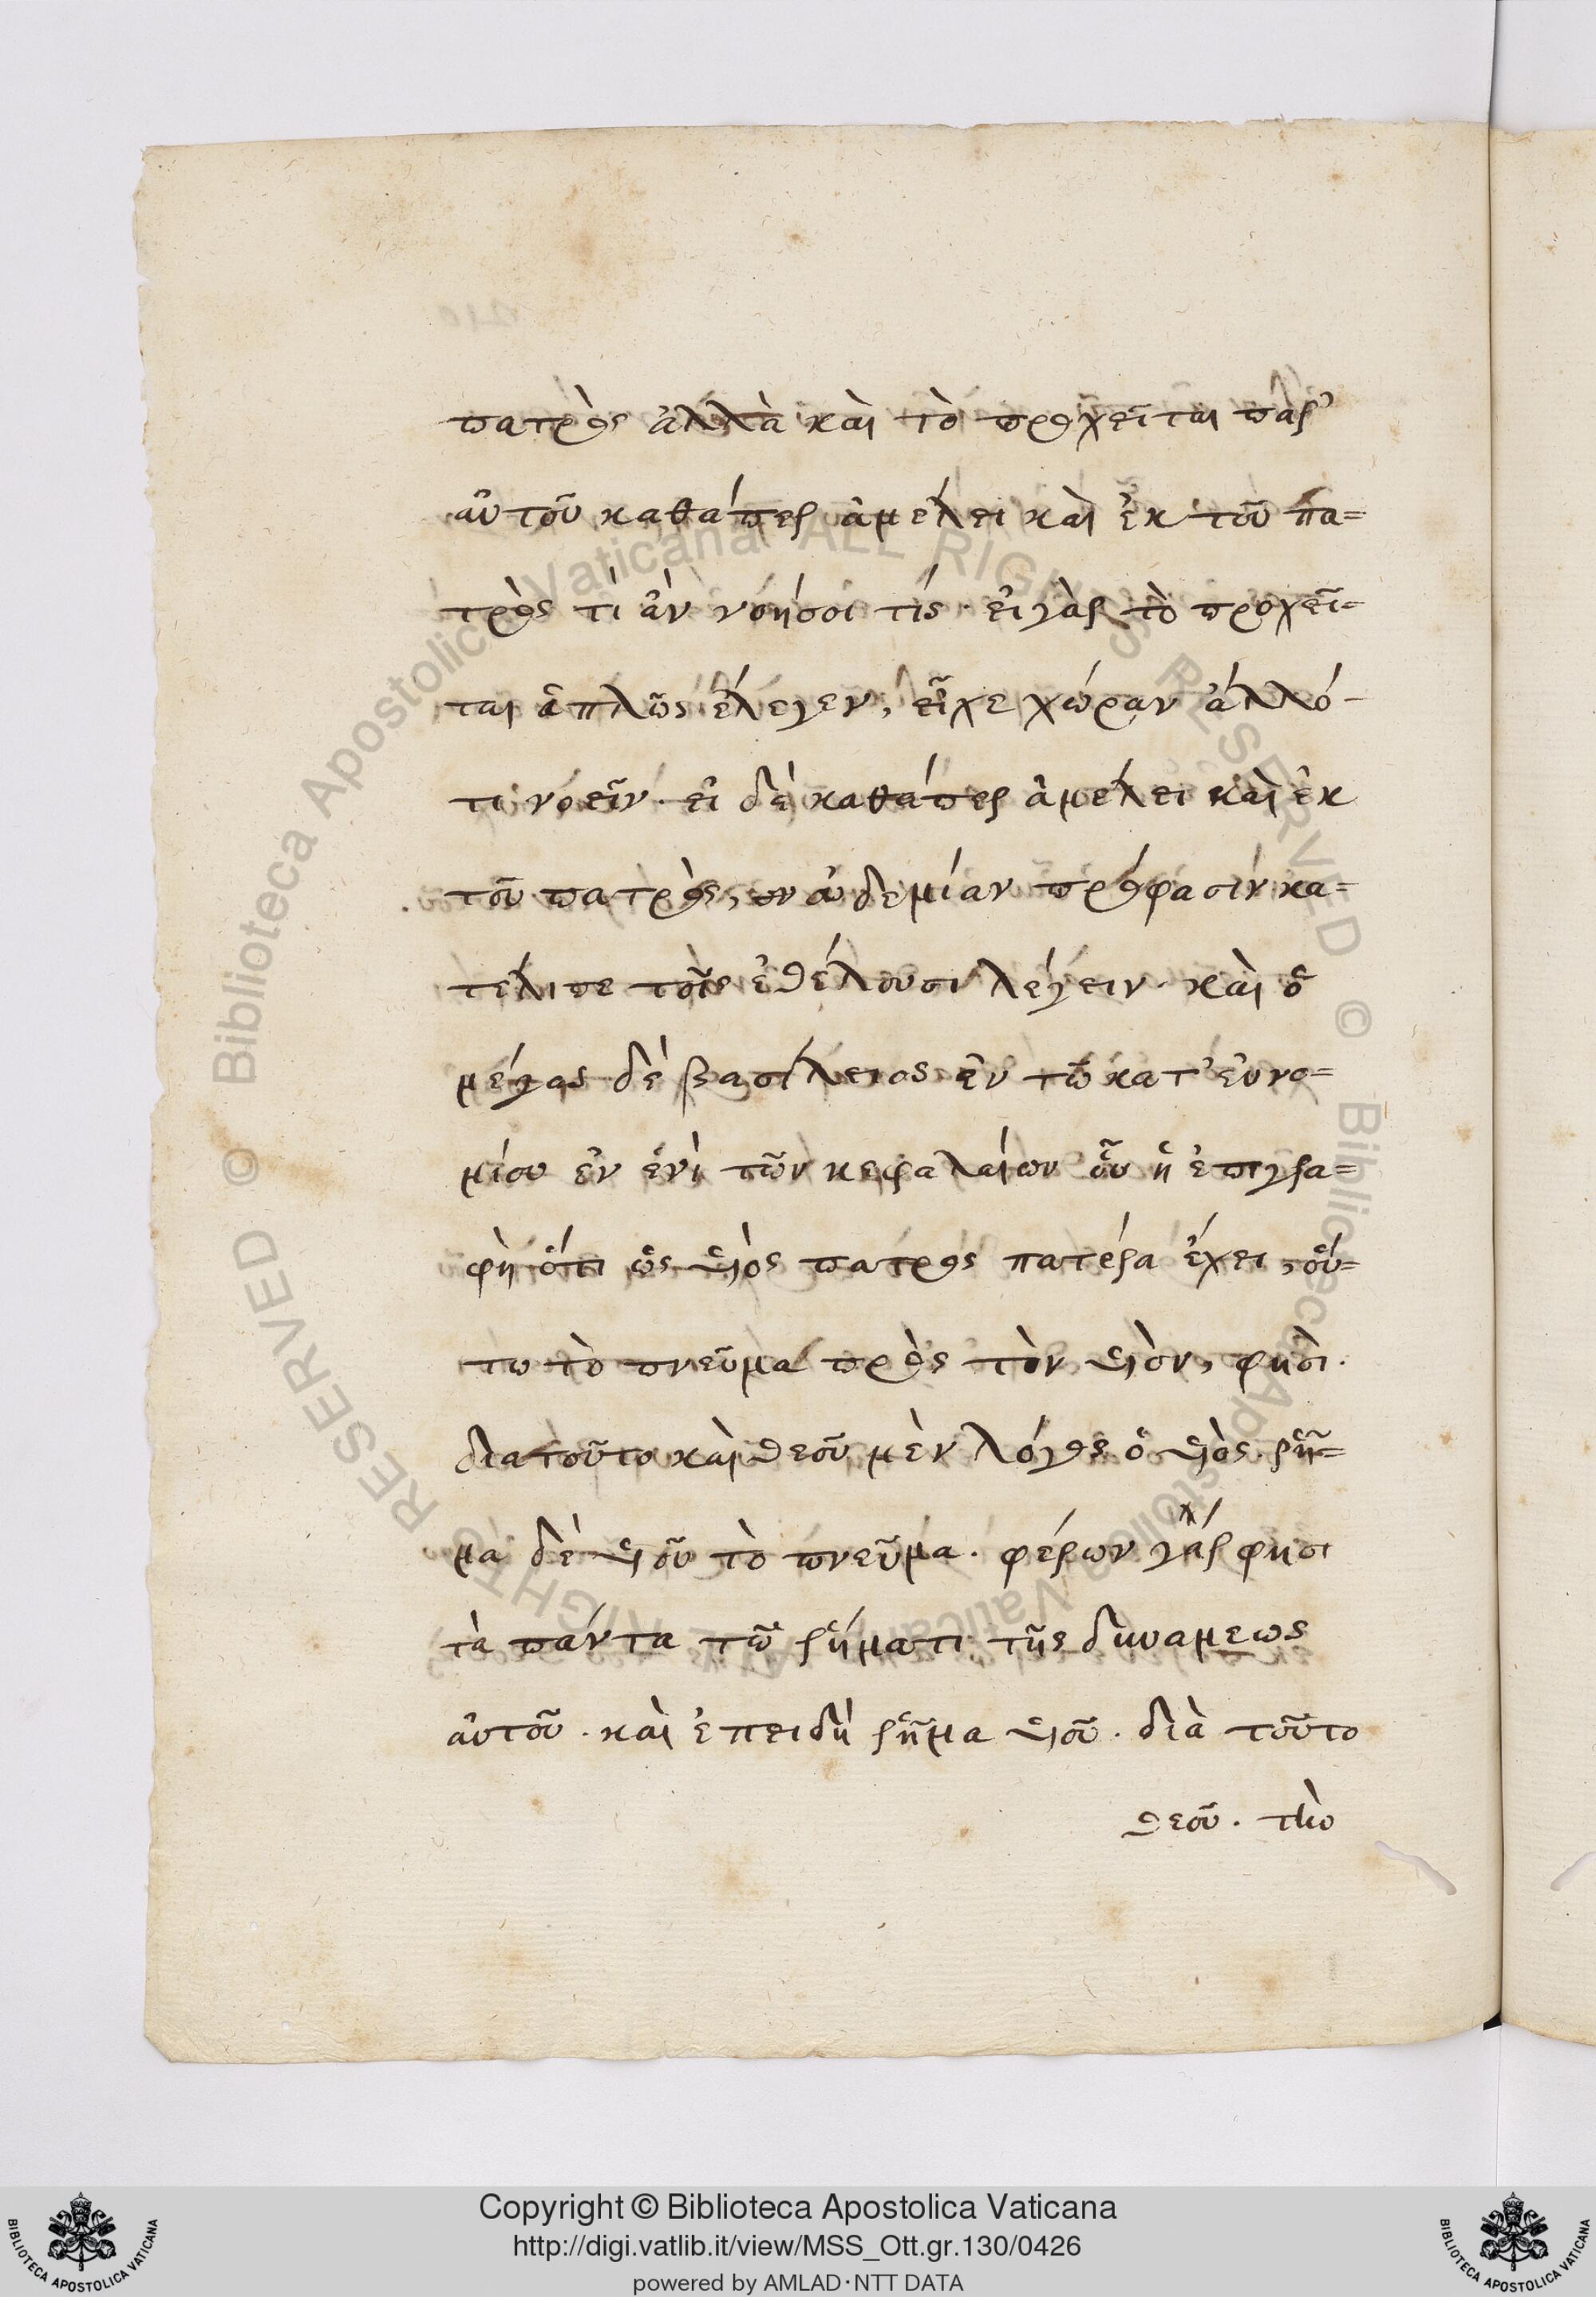 πατρὸς ἀλλὰ καὶ τὸ προχεῖται παρ'
αὐτοῦ καθάπερ ἀμέλει καὶ ἐκ τοῦ πα=
τρὸς τί ἂν νοήσοι τίς · εἰ γὰρ τὸ προχεῖ=
ται ἁπλῶς ἔλεγεν, εἶχε χώραν ἀλλό-
τι νοεῖν · εἰ δὲ καθάπερ ἀμέλει καὶ ἐκ
τοῦ πατρὸς, οὐδεμίαν πρόφασιν κα=
τέλιπε τοῖς ἐθέλουσι λέγειν · καὶ ὁ
μέγας δὲ βασίλειος ἐν τῷ κατ' εὐνο=
μίου ἐν ἑνὶ τῶν κεφαλαίων οὗ ἡ ἐπιγρα=
φὴ ὅτι ὡς υἱὸς πατρὸς πατέρα ἔχει, οὕ=
τω τὸ πνεῦμα πρὸς τὸν υἱὸν, φησὶ ·
διατοῦτο καὶ θεοῦ μὲν λόγος ὁ υἱὸς · ῥῆ=
μα δὲ υἱοῦ τὸ πνεῦμα · φέρων γάρ φησι
τὰ πάντα τῷ ῥήματι τῆς δυναμεως
αὐτοῦ · καὶ ἐπειδὴ ῥῆμα υἱοῦ · διὰ τοῦτο
θεοῦ · τὴν
Copyright © Biblioteca Apostolica Vaticana
http://digi.vatlib.it/view/MSS_Ott.gr.130/0426
powered by AMLAD·NTT DATA
BIBLIOTECA APOSTOLICA VATICANA
BIBLIOTECA APOSTOLICA VATICANA